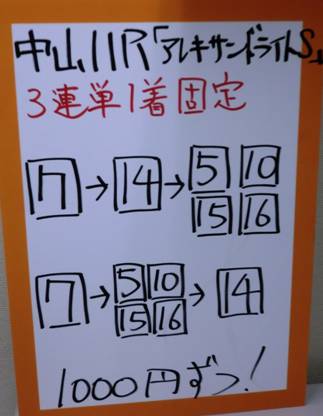 中山11R「アレキサンドライトS」
3連単1着固定
7→14→5 10 15 16
7→5 10 15 16→14
1000円ずつ!